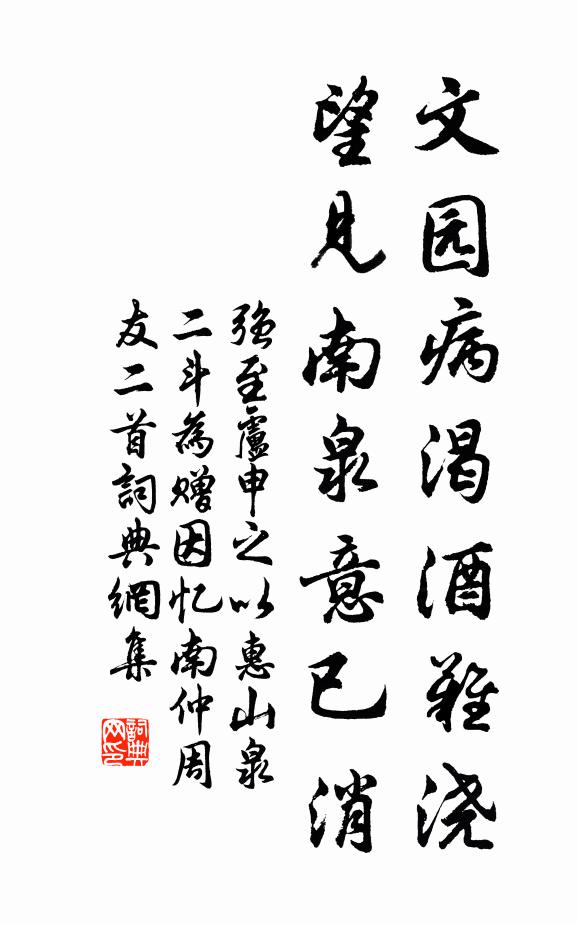 文园病渴酒难浇
望见南泉意已消
强至盧申之以惠山泉
二斗為赠因忆南仲周
友二首詞典網集
詞典
网印